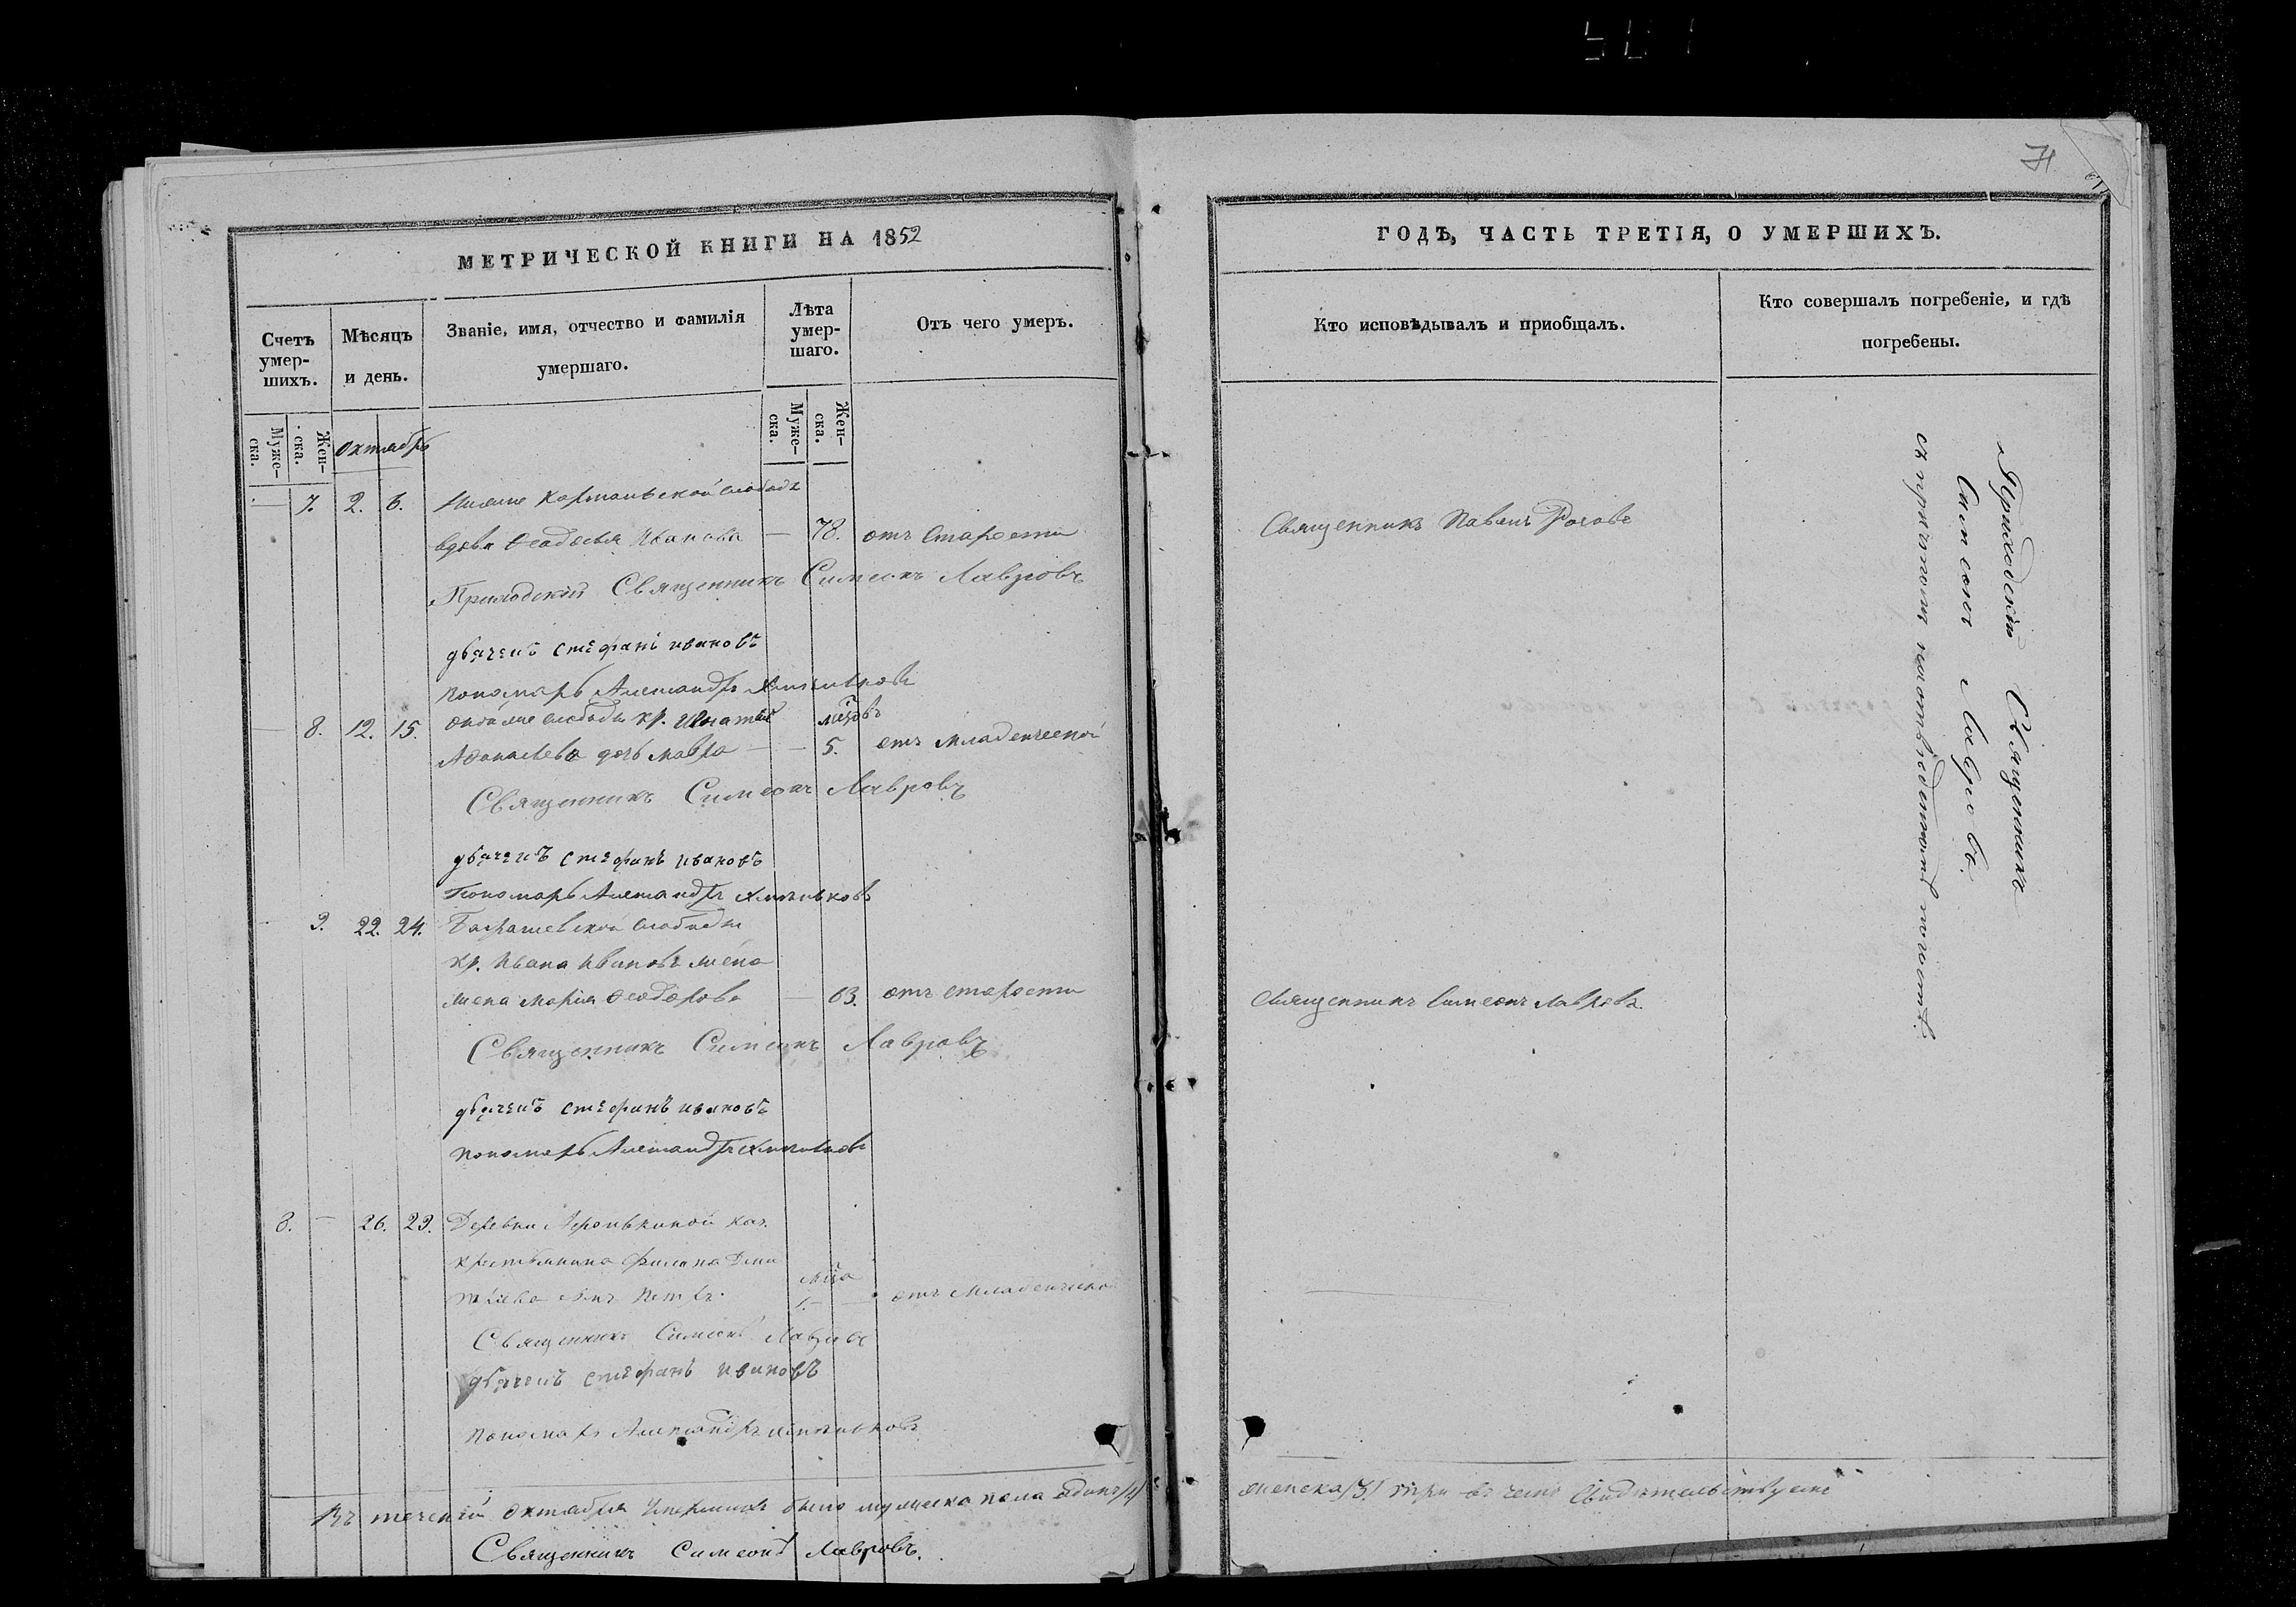 71
МЕТРИЧЕСКОЙ КНИГИ НА 1852
Счетъ умер-
шихъ.
Мѣсяцъ
и день.
Званіе, имя, отчество и фамилія
умершаго.
Лѣта
умер-
шаго.
Отъ чего умеръ.
Муже-
ска.
Жен-
ска.
Октябрь
Муже-
ска.
Жен-
ска.
— 7. 2. 6. слободы
вдова Ѳеодосья Иванова — 78. отъ Старости
Приходскій Священникъ Симеонъ Лавровъ
дьячекъ стефанъ ивановъ
пономарь Александръ
— 8. 12. 15. слободы кр. Игнатія мѣсяцовъ
дочь Мавра — — 5. отъ Младенческой
Священникъ Симеонъ Лавровъ
дьячекъ стефанъ ивановъ
Пономарь Александръ
9. 22. 24. слободы
кр. Ивана Иванова жена
жена Марія Ѳеодорова — 63. отъ старости
Священникъ Симеонъ Лавровъ
дьячекъ стефанъ ивановъ
пономарь Александръ
8. — 26. 29. Деревни каз.
крестьянина Филипа
сынъ Петръ. 1. — отъ Младенческой
Священникъ Симеонъ Лавровъ
дьячекъ стефанъ ивановъ
пономарь Александръ
Въ теченіи Октября умершихъ было мужеска пола одинъ /1/
Священникъ Симеонъ Лавровъ.
ГОДЪ, ЧАСТЬ ТРЕТІЯ, О УМЕРШИХЪ.
Кто исповѣдывалъ и приобщалъ.
Кто совершалъ погребеніе, и гдѣ
погребены.
Священникъ Павелъ Роговъ
Священникъ Симеонъ Лавровъ.
Приходскій Священникъ
Симеонъ Лавровъ.
съ причтомъ на погостѣ.
женска /3/ три въ чемъ Свидѣтельствуемъ